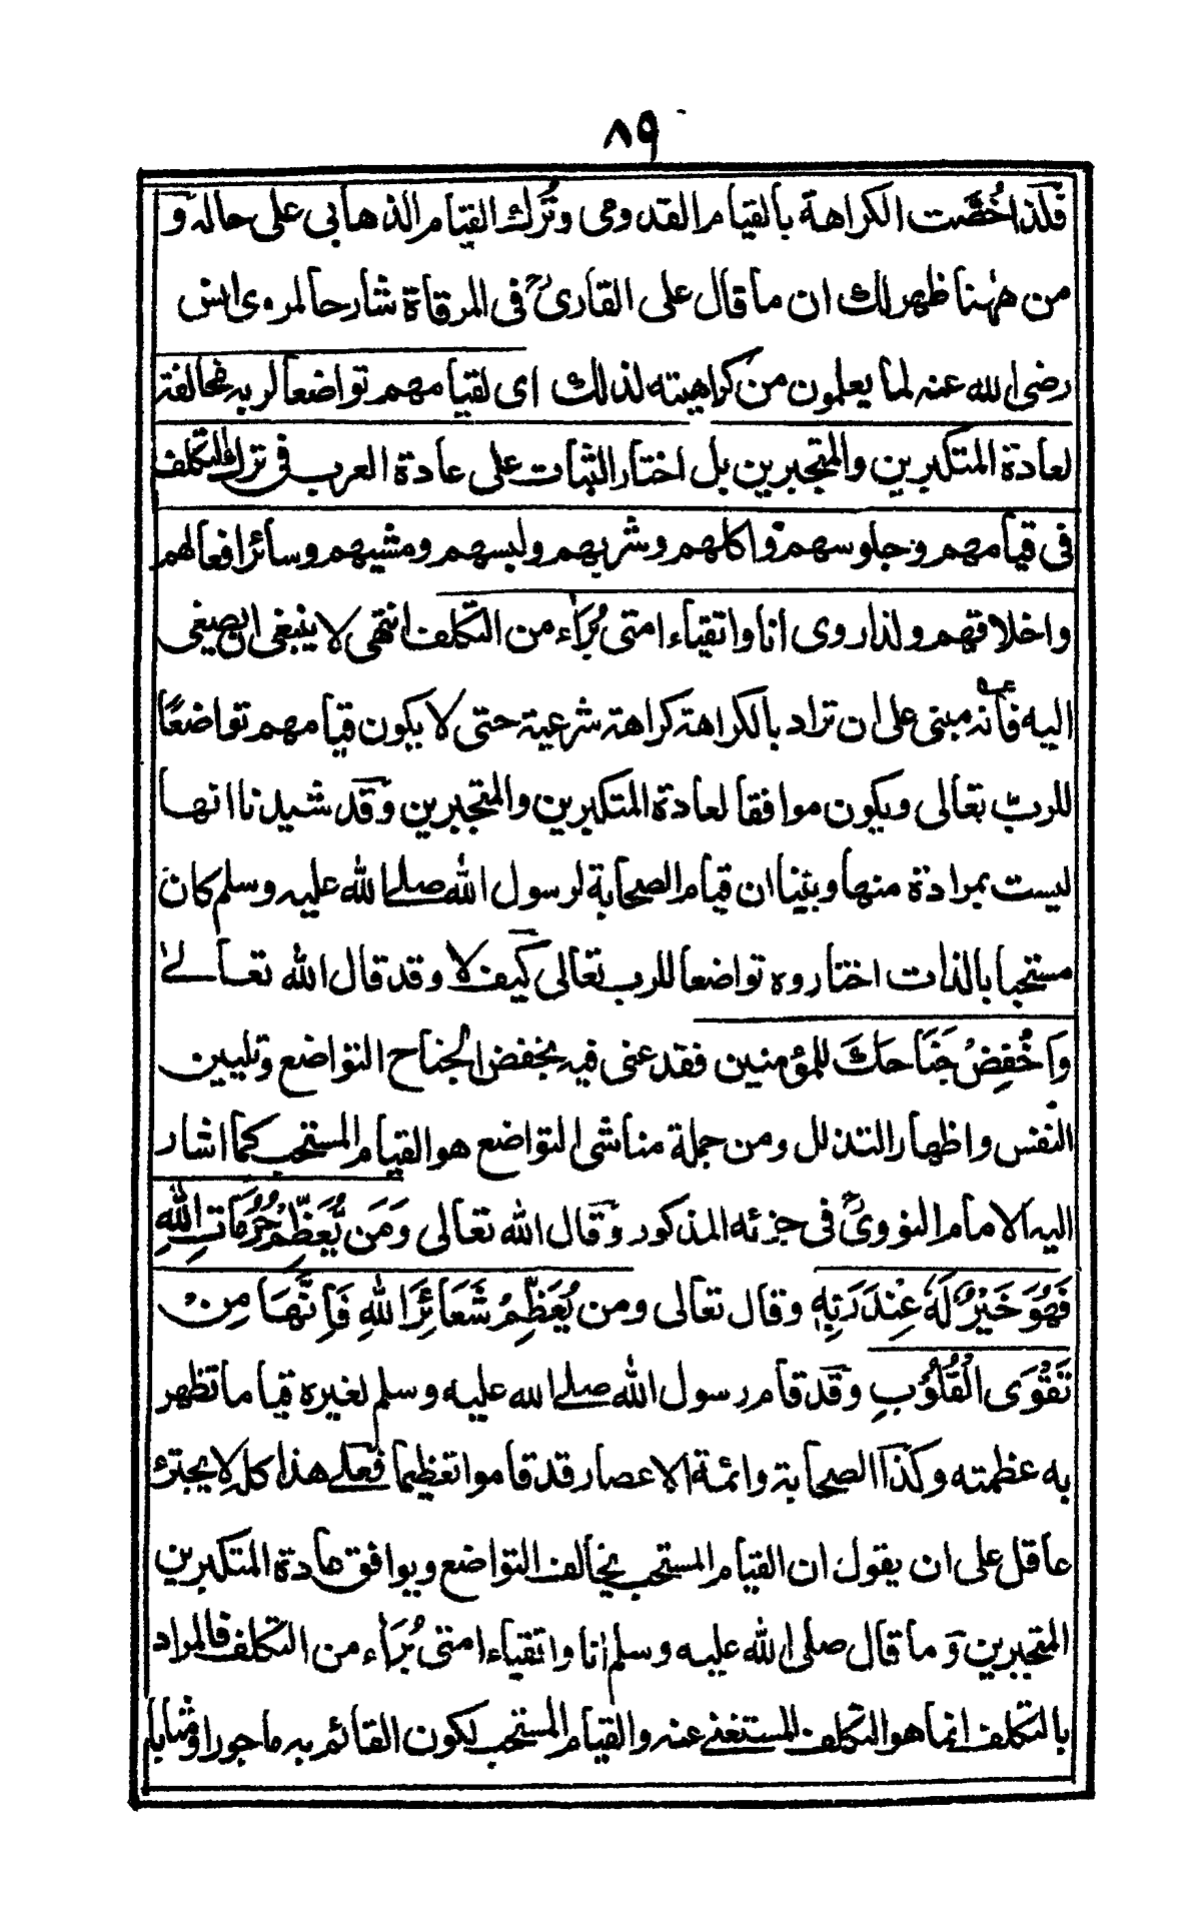 ٨٩
فلذا خُصَّت الكراهة بالقيام القدومي وتُرك القيام الذهابي على حاله و
من ههنا ظهر لك ان ما قال على القارىؒ فى المرقاة شارحا لمروى انس
رضى الله عنه لما يعلمون من كراهيته لذلك اى لقيامهم تواضعا لربه مخالفة
لعادة المتكبرين والمتجبرين بل اختار الثبات على عادة العرب فى ترك التكلف
فى قيامهم وجلوسهم واكلهم وشربهم ولبسهم ومشيهم وسائر افعالهم
واخلاقهم ولذا روى انا واتقياء امتى بُرَآء من التكلف انتهى لا ينبغى ان يصغى
اليه فانه مبنى على ان تراد بالكراهة كراهة شرعية حتى لا يكون قيامهم تواضعًا
للربّ تعالى ويكون موافقا لعادة المتكبرين والمتجبرين وقد شيدنا انها
ليست بمرادة منها وبيّنا ان قيام الصحابة لرسول الله صلى الله عليه وسلم كان
مستحبا بالذات اختاروه تواضعا للرب تعالى كيف لا وقد قال الله تعالىٰ
وَاخْفِضْ جَنَاحَكَ للمؤمنين فقد عنى فيه بخفض الجناح التواضع وتليين
النفس واظهار التذلل ومن جملة مناشى التواضع هو القيام المستحب كما اشار
اليه الامام النووىؒ فى جزئه المذكور وقال الله تعالى وَمَن يُّعَظِّمْ حُرُمَاتِ اللهِ
فَهُوَ خَيْرٌ لَهٗ عِنْدَ رَبِّهٖ وقال تعالى ومن يُعَظِّمْ شَعَائِرَ اللهِ فَاِنَّهَا مِنْ
تَقْوَى الْقُلُوْبِ وقد قام رسول الله صلى الله عليه وسلم لغيره قياما تظهر
به عظمته وكذا الصحابة وائمة الاعصار قد قاموا تعظيما فعلى هذا كله لا يجترئ
عاقل على ان يقول ان القيام المستحب يخالف التواضع ويوافق عادة المتكبرين
المتجبرين و ما قال صلى الله عليه وسلم انا واتقياء امتى بُرَآء من التكلف فالمراد
بالتكلف انما هو التكلف المستغنى عنه والقيام المستحب لكون القائم به ماجورا ومثابا